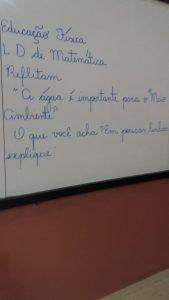 Educação Física
L D de Matemática
Reflitam
"A água é importante para o "Meio
Ambiente"
O que você acha? Em poucas linhas
explique: